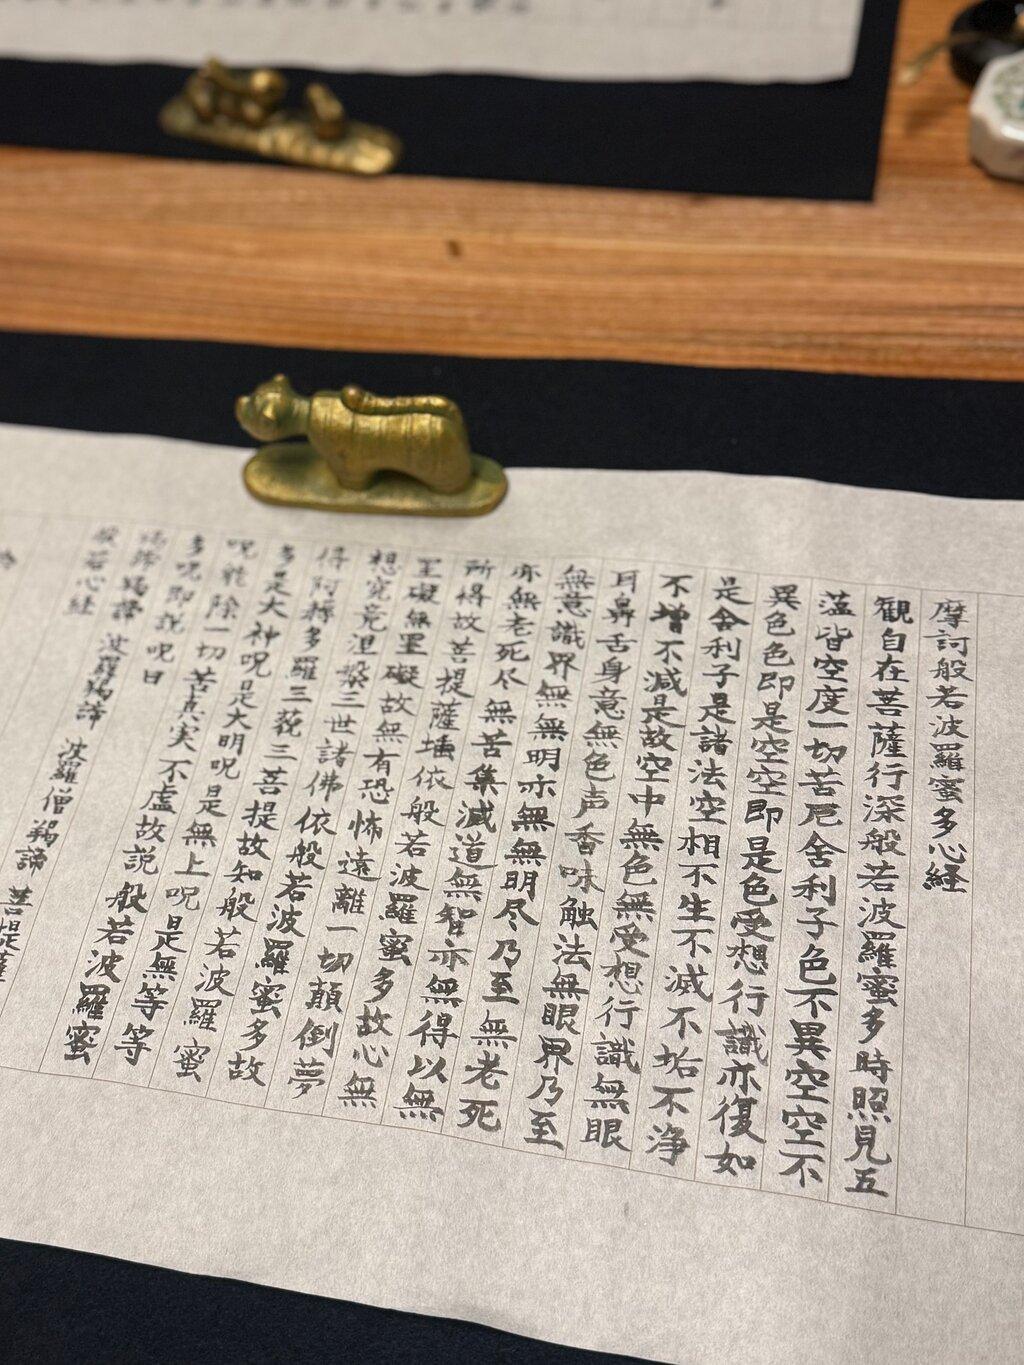 摩訶般若波羅蜜多心経
観自在菩薩行深般若波羅蜜多時照見五
薀皆空度一切苦厄舎利子色不異空空不
異色色即是空空即是色受想行識亦復如
是舎利子是諸法空相不生不滅不垢不浄
不増不減是故空中無色無受想行識無眼
耳鼻舌身意無色声香味触法無眼界乃至
無意識界無無明亦無無明尽乃至無老死
亦無老死尽無苦集滅道無智亦無得以無
所得故菩提薩埵依般若波羅蜜多故心無
罣礙無罣礙故無有恐怖遠離一切顛倒夢
想究竟涅槃三世諸佛依般若波羅蜜多故
得阿耨多羅三藐三菩提故知般若波羅蜜
多是大神呪是大明呪是無上呪是無等等
呪能除一切苦真実不虚故説般若波羅蜜
多呪即説呪曰
羯諦羯諦 波羅羯諦 波羅僧羯諦 菩提薩
般若心経